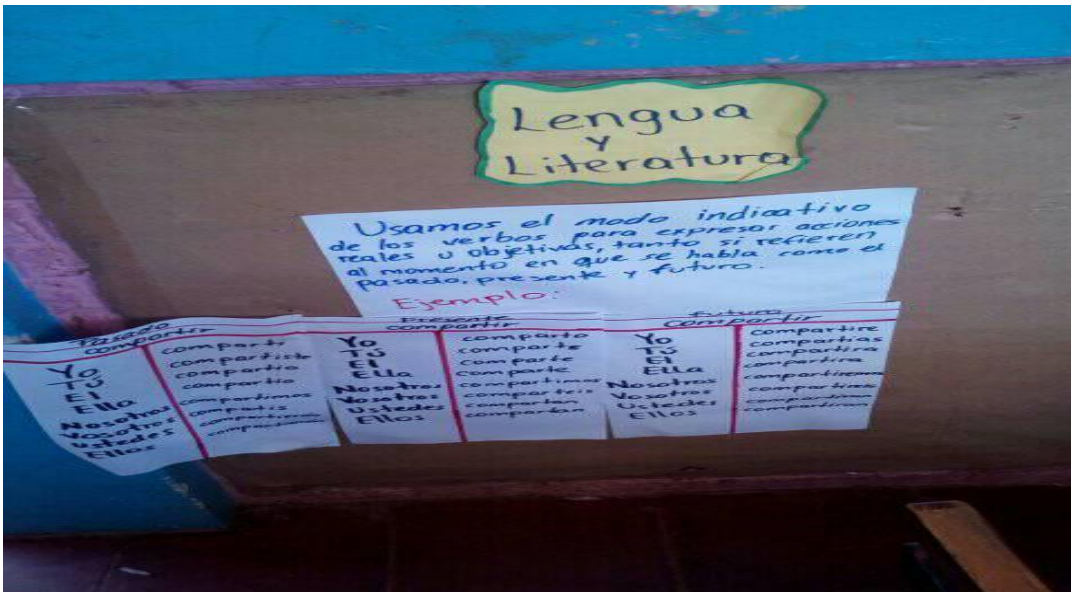 Lengua
y
Literatura
Usamos el modo indicativo
de los verbos para expresar acciones
reales u objetivas, tanto si refieren
al momento en que se habla como el
pasado, presente y futuro.
Ejemplo:
Pasado
compartir
Yo compartí
Tú compartiste
El compartio
Ella compartio
Nosotros compartimos
Vosotros
Ustedes
Ellos
Presente
compartir
Yo comparto
Tú comparte
El comparte
Ella comparte
Nosotros compartimos
Vosotros comparteis
Ustedes compartan
Ellos compartan
Futuro
compartir
Yo compartire
Tú compartias
El compartira
Ella compartira
Nosotros compartiremos
Vosotros
Ustedes
Ellos